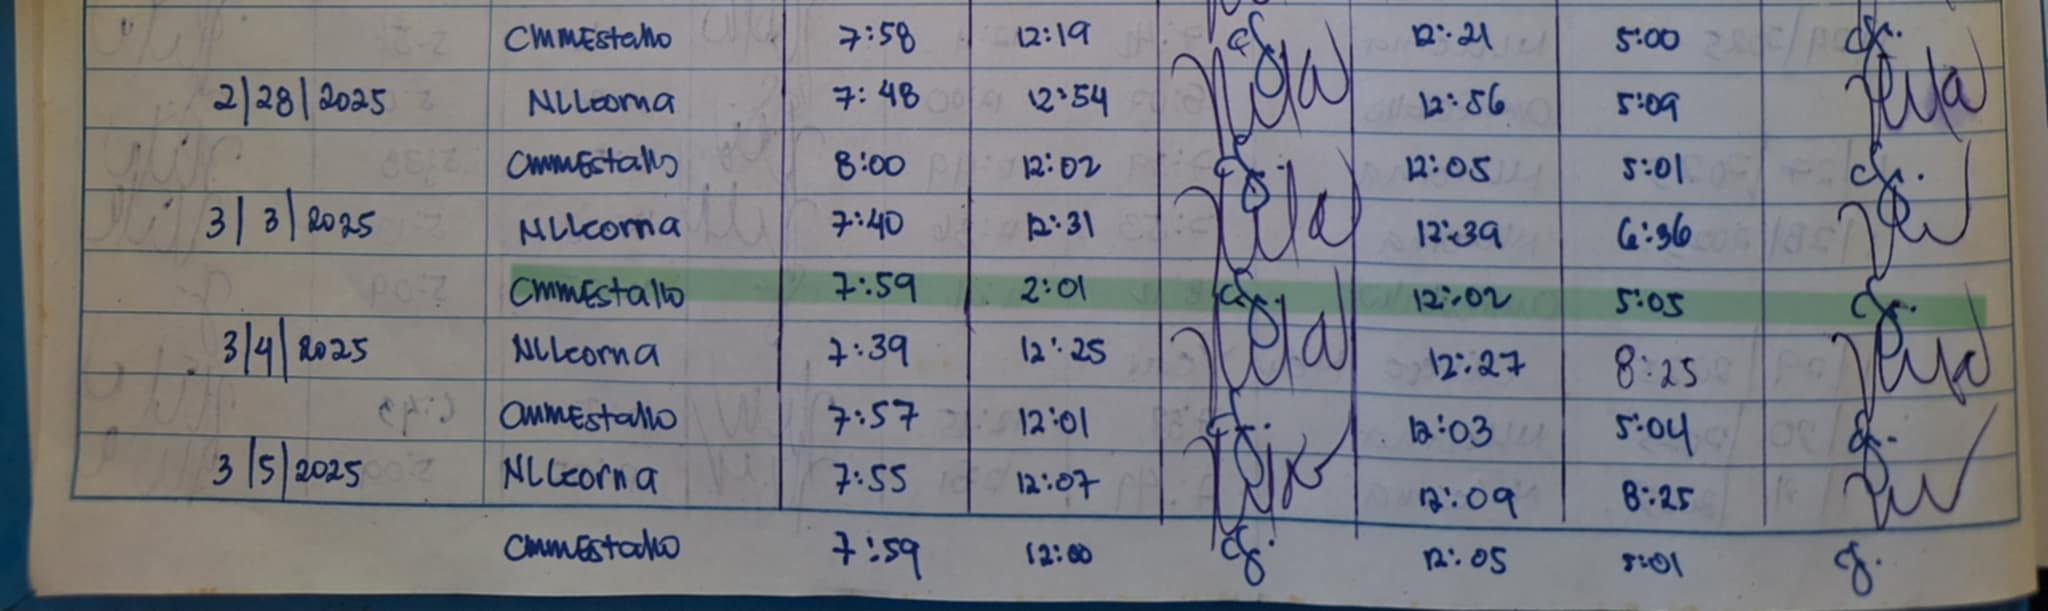 CMMEstallo 7:58 12:19 12:21 5:00
2/28/2025 NLLcorna 7:48 12:54 12:56 5:09
CMMEstallo 8:00 12:02 12:05 5:01
3/3/2025 NLLcorna 7:40 12:31 12:39 6:36
CMMEstallo 7:59 2:01 12:02 5:05
3/4/2025 NLLcorna 7:39 12:25 12:27 8:25
CMMEstallo 7:57 12:01 12:03 5:04
3/5/2025 NLLcorna 7:55 12:07 12:09 8:25
CMMEstallo 7:59 12:00 12:05 5:01